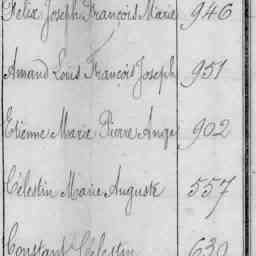 Félix Joseph François Marie 946
Amand Louis François Joseph 951
Etienne Marie Pierre Ange 902
Célestin Marie Auguste 557
Constant Célestin 630